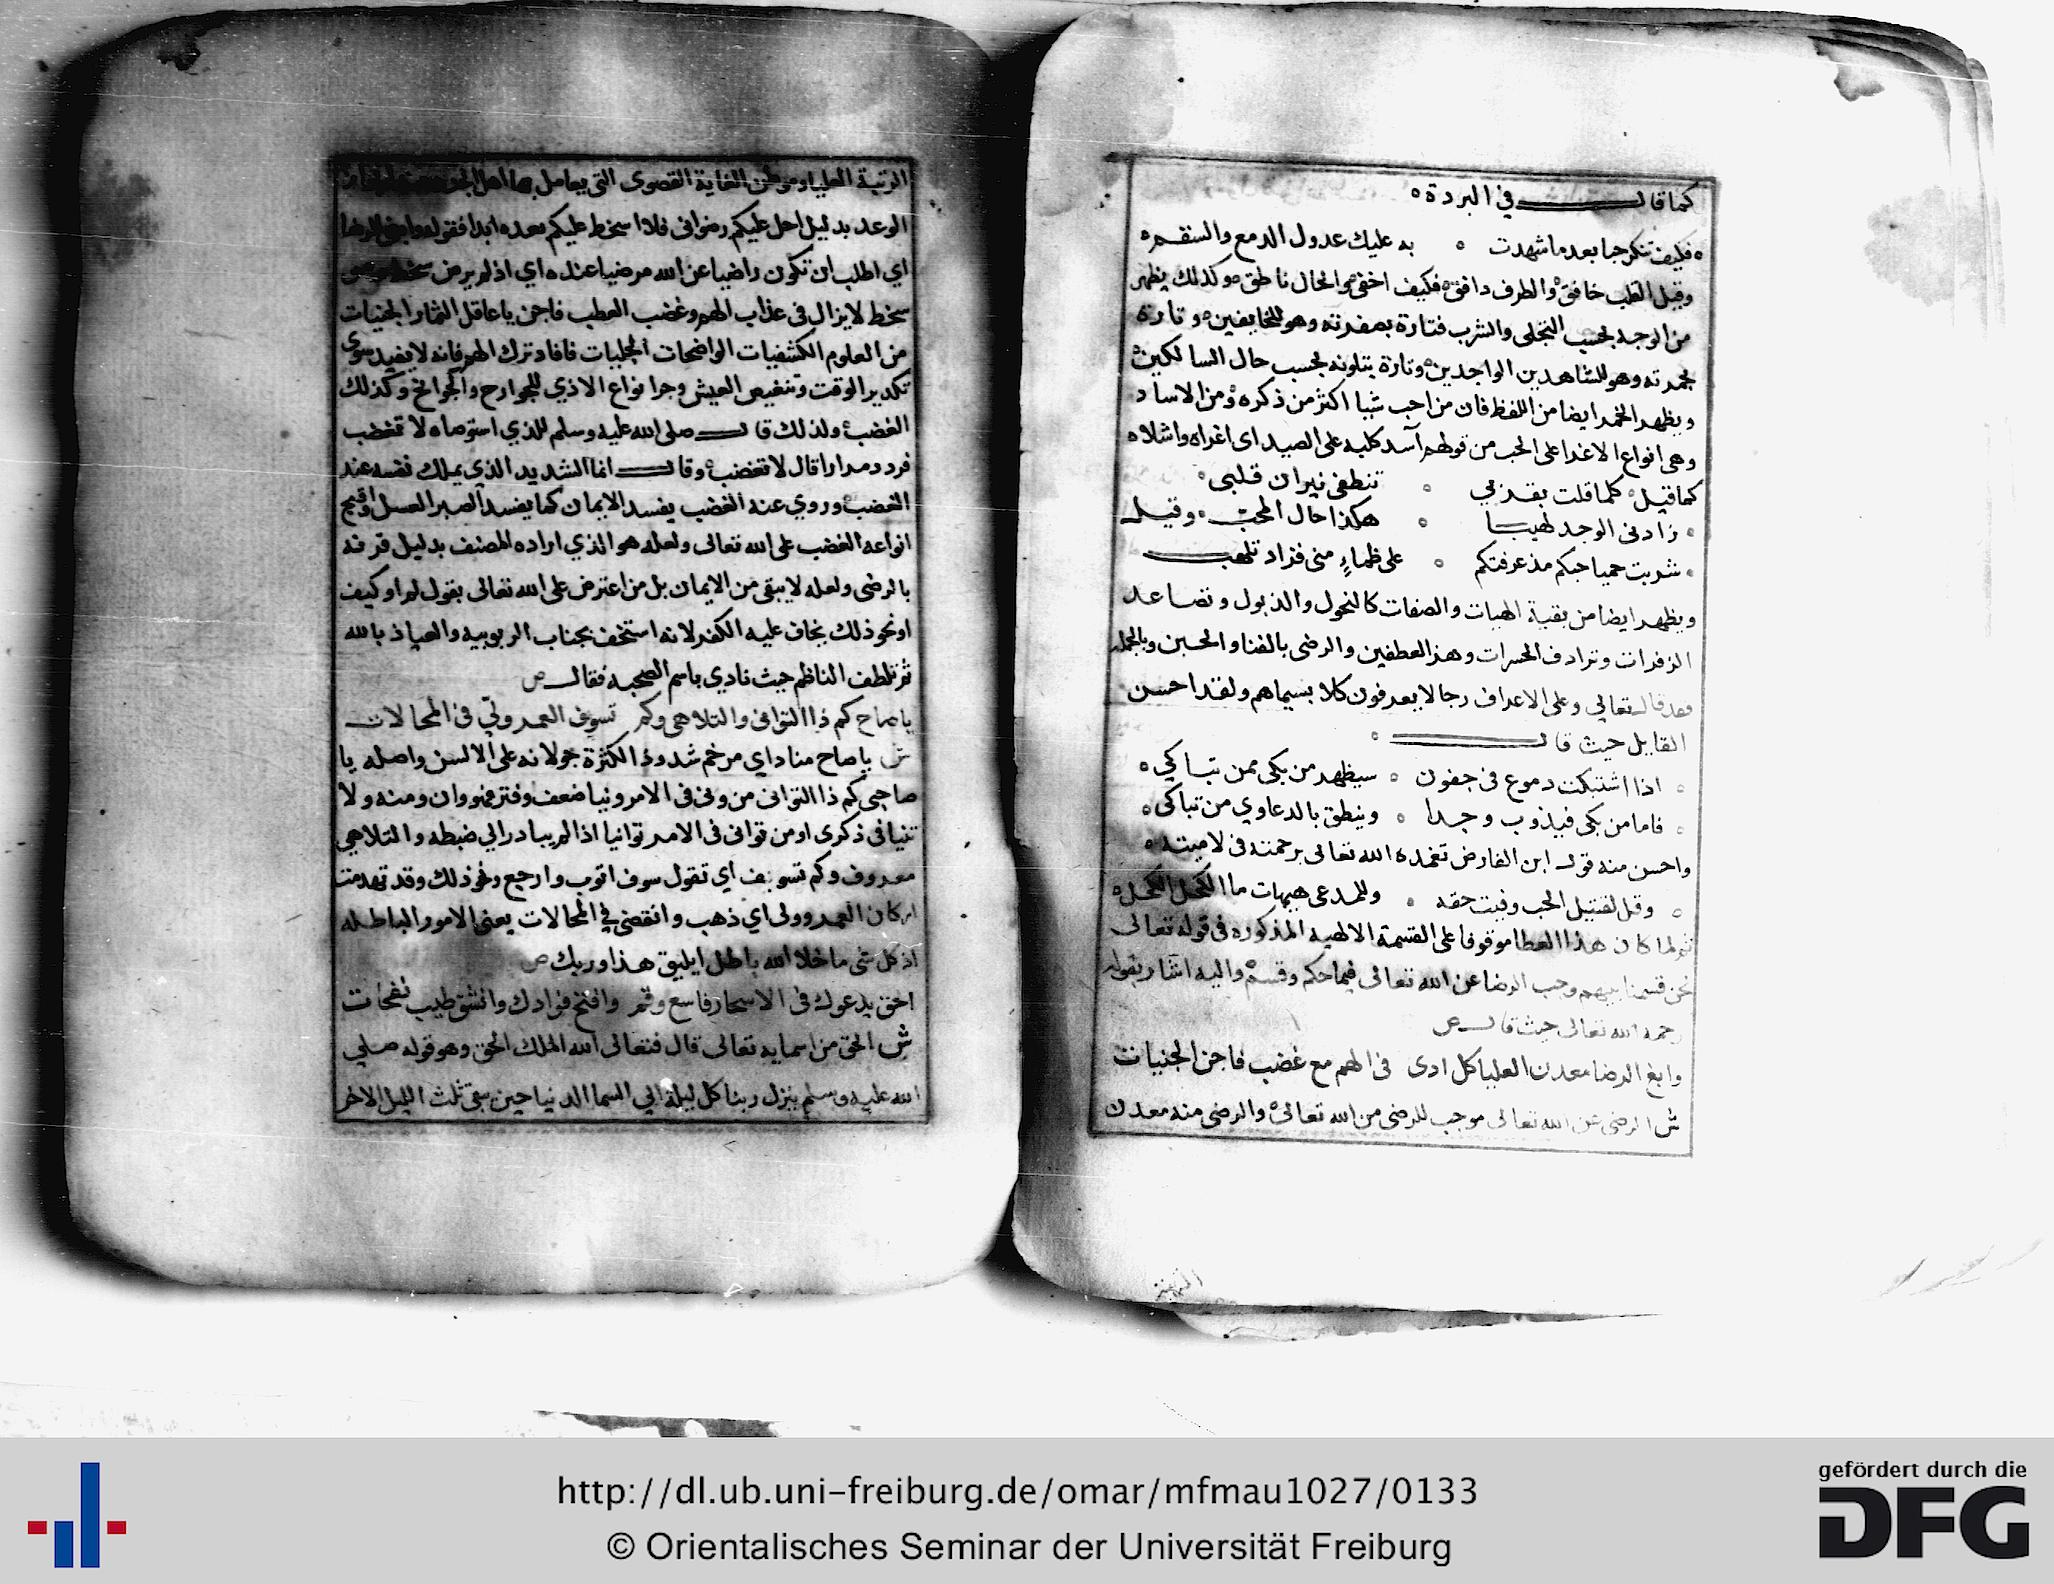 كما قال في البردة ه
ه فكيف تنكر حبا بعد ما شهدت ه به عليك عدول الدمع والسقم ه
وقيل القلب خافق والطرف دافق فكيف اخفى والحال ناطق وكذلك يظهر
من الوجه بحسب التجلى والشرب فتارة بصفرته وهو للخايفين ه وتارة
بحمرته وهو للشاهدين الواجدين ه وتارة بتلونه بحسب حال السالكين ه
ويظهر الخمر ايضا من اللفظ فان من احب شيا اكثر من ذكره ومن الاساد
وهى انواع الاغدا على الحب من قولهم آسد كلبه على الصيد اى اغراه واشلاه
كما قيل ه كلما قلت بقربي ه تنطفى نيران قلبى ه
ه زادنى الوجد لهيبا ه هكذا حال المحب ه وقيل
ه شربت حميا حبكم مذ عرفتكم ه على ظماءٍ منى فزاد تلهب
ويظهر ايضا من بقية الهيات والصفات كالنحول والذبول وتصاعد
الزفرات وترادف الحسرات وهذ العطفين والرضى بالفنا والحين وبالجمله
فقد قال تعالي وعلى الاعراف رجالا يعرفون كلا بسيماهم ولقد احسن
القايل حيث قال ه
ه اذا اشتبكت دموع فى جفون ه سيظهر من بكى ممن تباكي ه
ه فاما من بكى فيذوب وجدا ه وينطق بالدعاوي من تباكى ه
واحسن منه قول ابن الفارض تغمده الله تعالى برحمته فى لاميته ه
ه وقل لقتيل الحب وفيت حقه ه وللمدعى هيهات ما الكحل الكحل ه
ثم لما كان هذا العطا موقوفا على القسمة الالهيه المذكوره فى قوله تعالى
نحن قسمنا بينهم وجب الرضا عن الله تعالى فيما حكم وقسم واليه اشار بقوله
رحمه الله تعالى حيث قال ص
وابغ الرضا معدن العليا كل ادى فى الهم مع غضب فاجن الجنيات
ش الرضى عن الله تعالى موجب للرضى من الله تعالى والرضى منه معدن
الرتبة العليا وموطن الغاية القصوى التى يعامل بها اهل
الوعد بدليل احل عليكم رضوانى فلا اسخط عليكم بعده ابدا فقوله وابغ الرضا
اي اطلب ان تكون راضيا عن الله مرضيا عنده اي اذ لم يرض سخط ومن
سخط لا يزال فى عذاب الهم وغضب العطب فاجن يا عاقل الثمار الجنيات
من العلوم الكشفيات الواضحات الجليات فافاد ترك الهم فانه لا يفيد سوى
تكدير الوقت وتنغيص العيش وجر انواع الاذي للجوارح والجوانح وكذلك
الغضب ولذلك قال صلى الله عليه وسلم للذي استوصاه لا تغضب
فردد مدارا قال لا تغضب وقال انما الشديد الذي يملك نفسه عند
الغضب وروي عنه الغضب يفسد الايمان كما يفسد الصبر العسل واقبح
انواعه الغضب على الله تعالى ولعله هو الذي اراده المصنف بدليل قرنه
بالرضى ولعله لا يبقى من الايمان بل من اعترض على الله تعالى بقول لم او كيف
او نحو ذلك يخاف عليه الكفر لانه استخف بجناب الربوبيه والعياذ بالله
ثم تلطف الناظم حيث نادي باسم الصحبه فقال ص
يا صاح كم ذا التوانى والتلاهى وكم تسويف العمر ولّي فى المحالات
ش يا صاح منادي مرخم شذوذا لكثرة جولانه على الالسن واصله يا
صاحبى كم ذا التوانى من ونى فى الامر ونيا ضعف وفتر فهو وان ومنه ولا
تنيا فى ذكرى او من توانى فى الامر توانيا اذ لم يبادر الي ضبطه والتلاهي
معروف وكم تسويف اي تقول سوف اتوب وارجع ونحو ذلك وقد تهدمت
اركان العمر وولى اي ذهب وانقضى في المحالات يعنى الامور الباطله
اذ كل شى ما خلا الله باطل ايليق هذا وربك ص
الحق يدعوك فى الاسحار فاسع وقم وافتح فوادك وانشق طيب نفحات
ش الحق من اسمايه تعالى قال فتعالى الله الملك الحق وهو قوله صلي
الله عليه وسلم ينزل ربنا كل ليلة الي السما الدنيا حين يبقى ثلث الليل الاخر
http://dl.ub.uni-freiburg.de/omar/mfmau1027/0133
© Orientalisches Seminar der Universität Freiburg
gefördert durch die
DFG